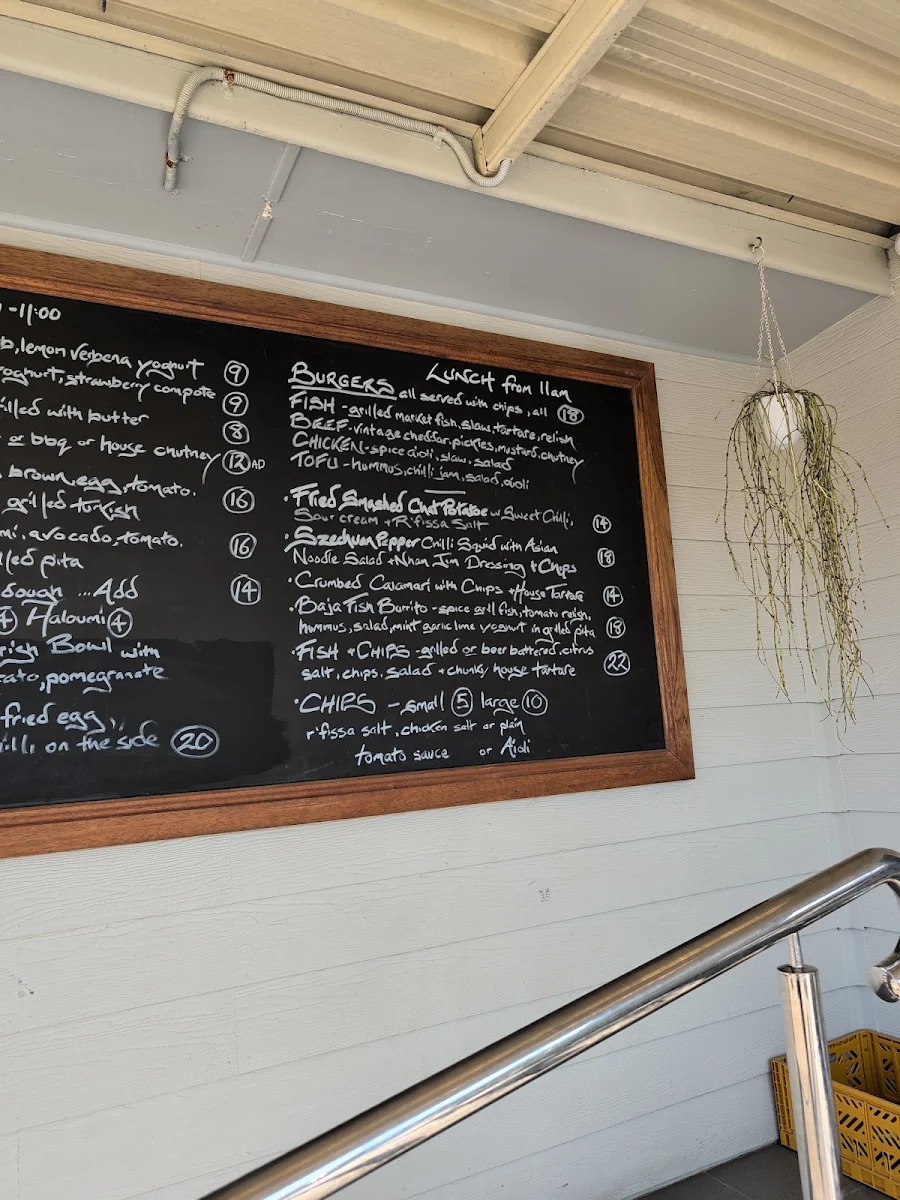 -11:00
b, lemon verbena yoghurt 9
yoghurt, strawberry compote 9
illed with butter 8
or bbq or house chutney 12 AD
brown, egg, tomato.
grilled turkish 16
mi, avocado, tomato.
lled pita 16
dough ...Add 14
4 Haloumi 4
rish Bowl with
ato, pomegranate
fried egg,
illi on the side 20
LUNCH from 11am
BURGERS all served with chips, all 18
FISH - grilled market fish, slaw, tartare, relish
BEEF - vintage cheddar, pickles, mustard, chutney
CHICKEN - spice aioli, slaw, salad
TOFU - hummus, chilli jam, salad, aioli
• Fried Smashed Chat Potatoe w. Sweet Chilli,
Sour cream + R'fissa Salt 14
• Szechuan Pepper Chilli Squid with Asian
Noodle Salad + Nhan Jim Dressing + Chips 18
• Crumbed Calamari with Chips + House Tartare 14
• Baja Fish Burito - spice grill fish, tomato relish,
hummus, salad, mint garic lime yoghurt in grilled pita 18
• FISH + CHIPS - grilled or beer battered, citrus
salt, chips, salad + chunky house tartare 22
• CHIPS - small 5 large 10
r'fissa salt, chicken salt or plain
tomato sauce or Aioli